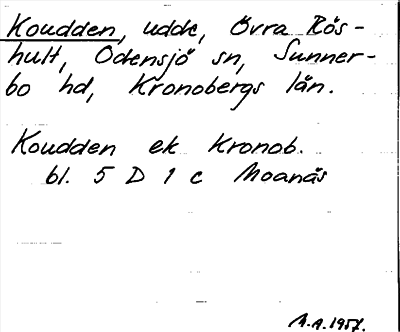 Koudden, udde, Övra Rös-
hult, Odensjö sn, Sunner-
bo hd, Kronobergs län.
Koudden ek Kronob.
bl. 5 D 1 c Moanäs
A.A. 1957.